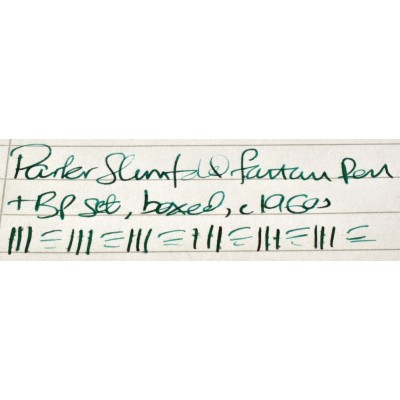 Parker Slimfold fountain Pen
+ BP set, boxed, c1960s